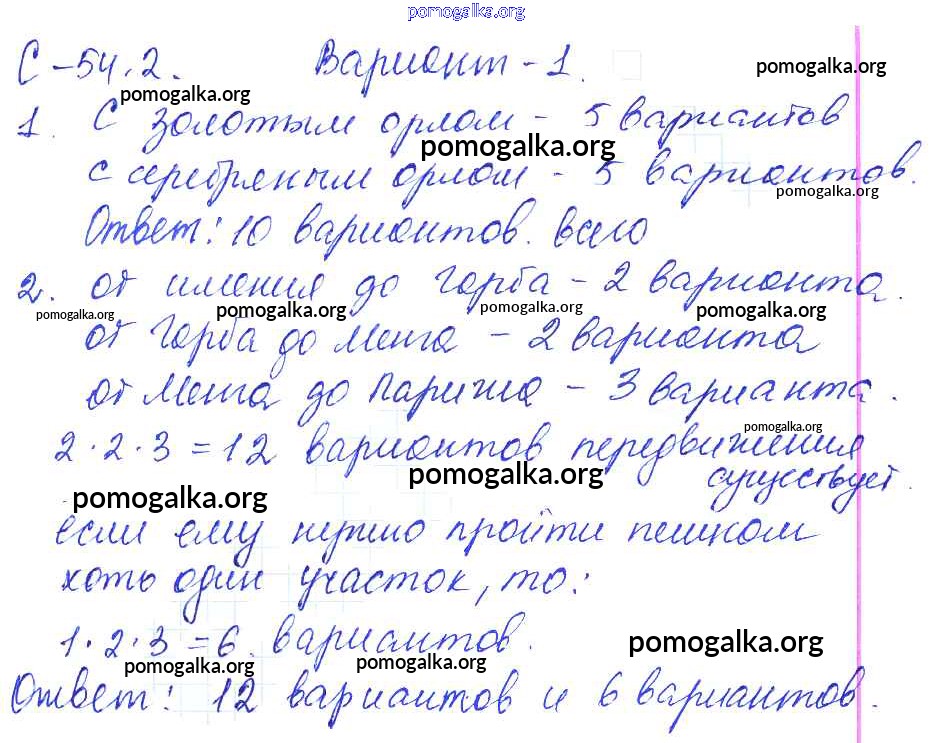 pomogalka.org
С-54.2. Вариант-1.
pomogalka.org
pomogalka.org
1. С золотым орлом - 5 вариантов
pomogalka.org
с серебряным орлом - 5 вариантов.
pomogalka.org
Ответ: 10 вариантов. всего
2. от имения до Горба - 2 варианта.
pomogalka.org pomogalka.org pomogalka.org pomogalka.org
от Горба до Менга - 2 варианта
от Менга до Парижа - 3 варианта.
pomogalka.org
2·2·3=12 вариантов передвижения
существует.
pomogalka.org
pomogalka.org
если ему нужно пройти пешком
хоть один участок, то:
1·2·3=6 вариантов.
pomogalka.org
pomogalka.org pomogalka.org
Ответ: 12 вариантов и 6 вариантов.